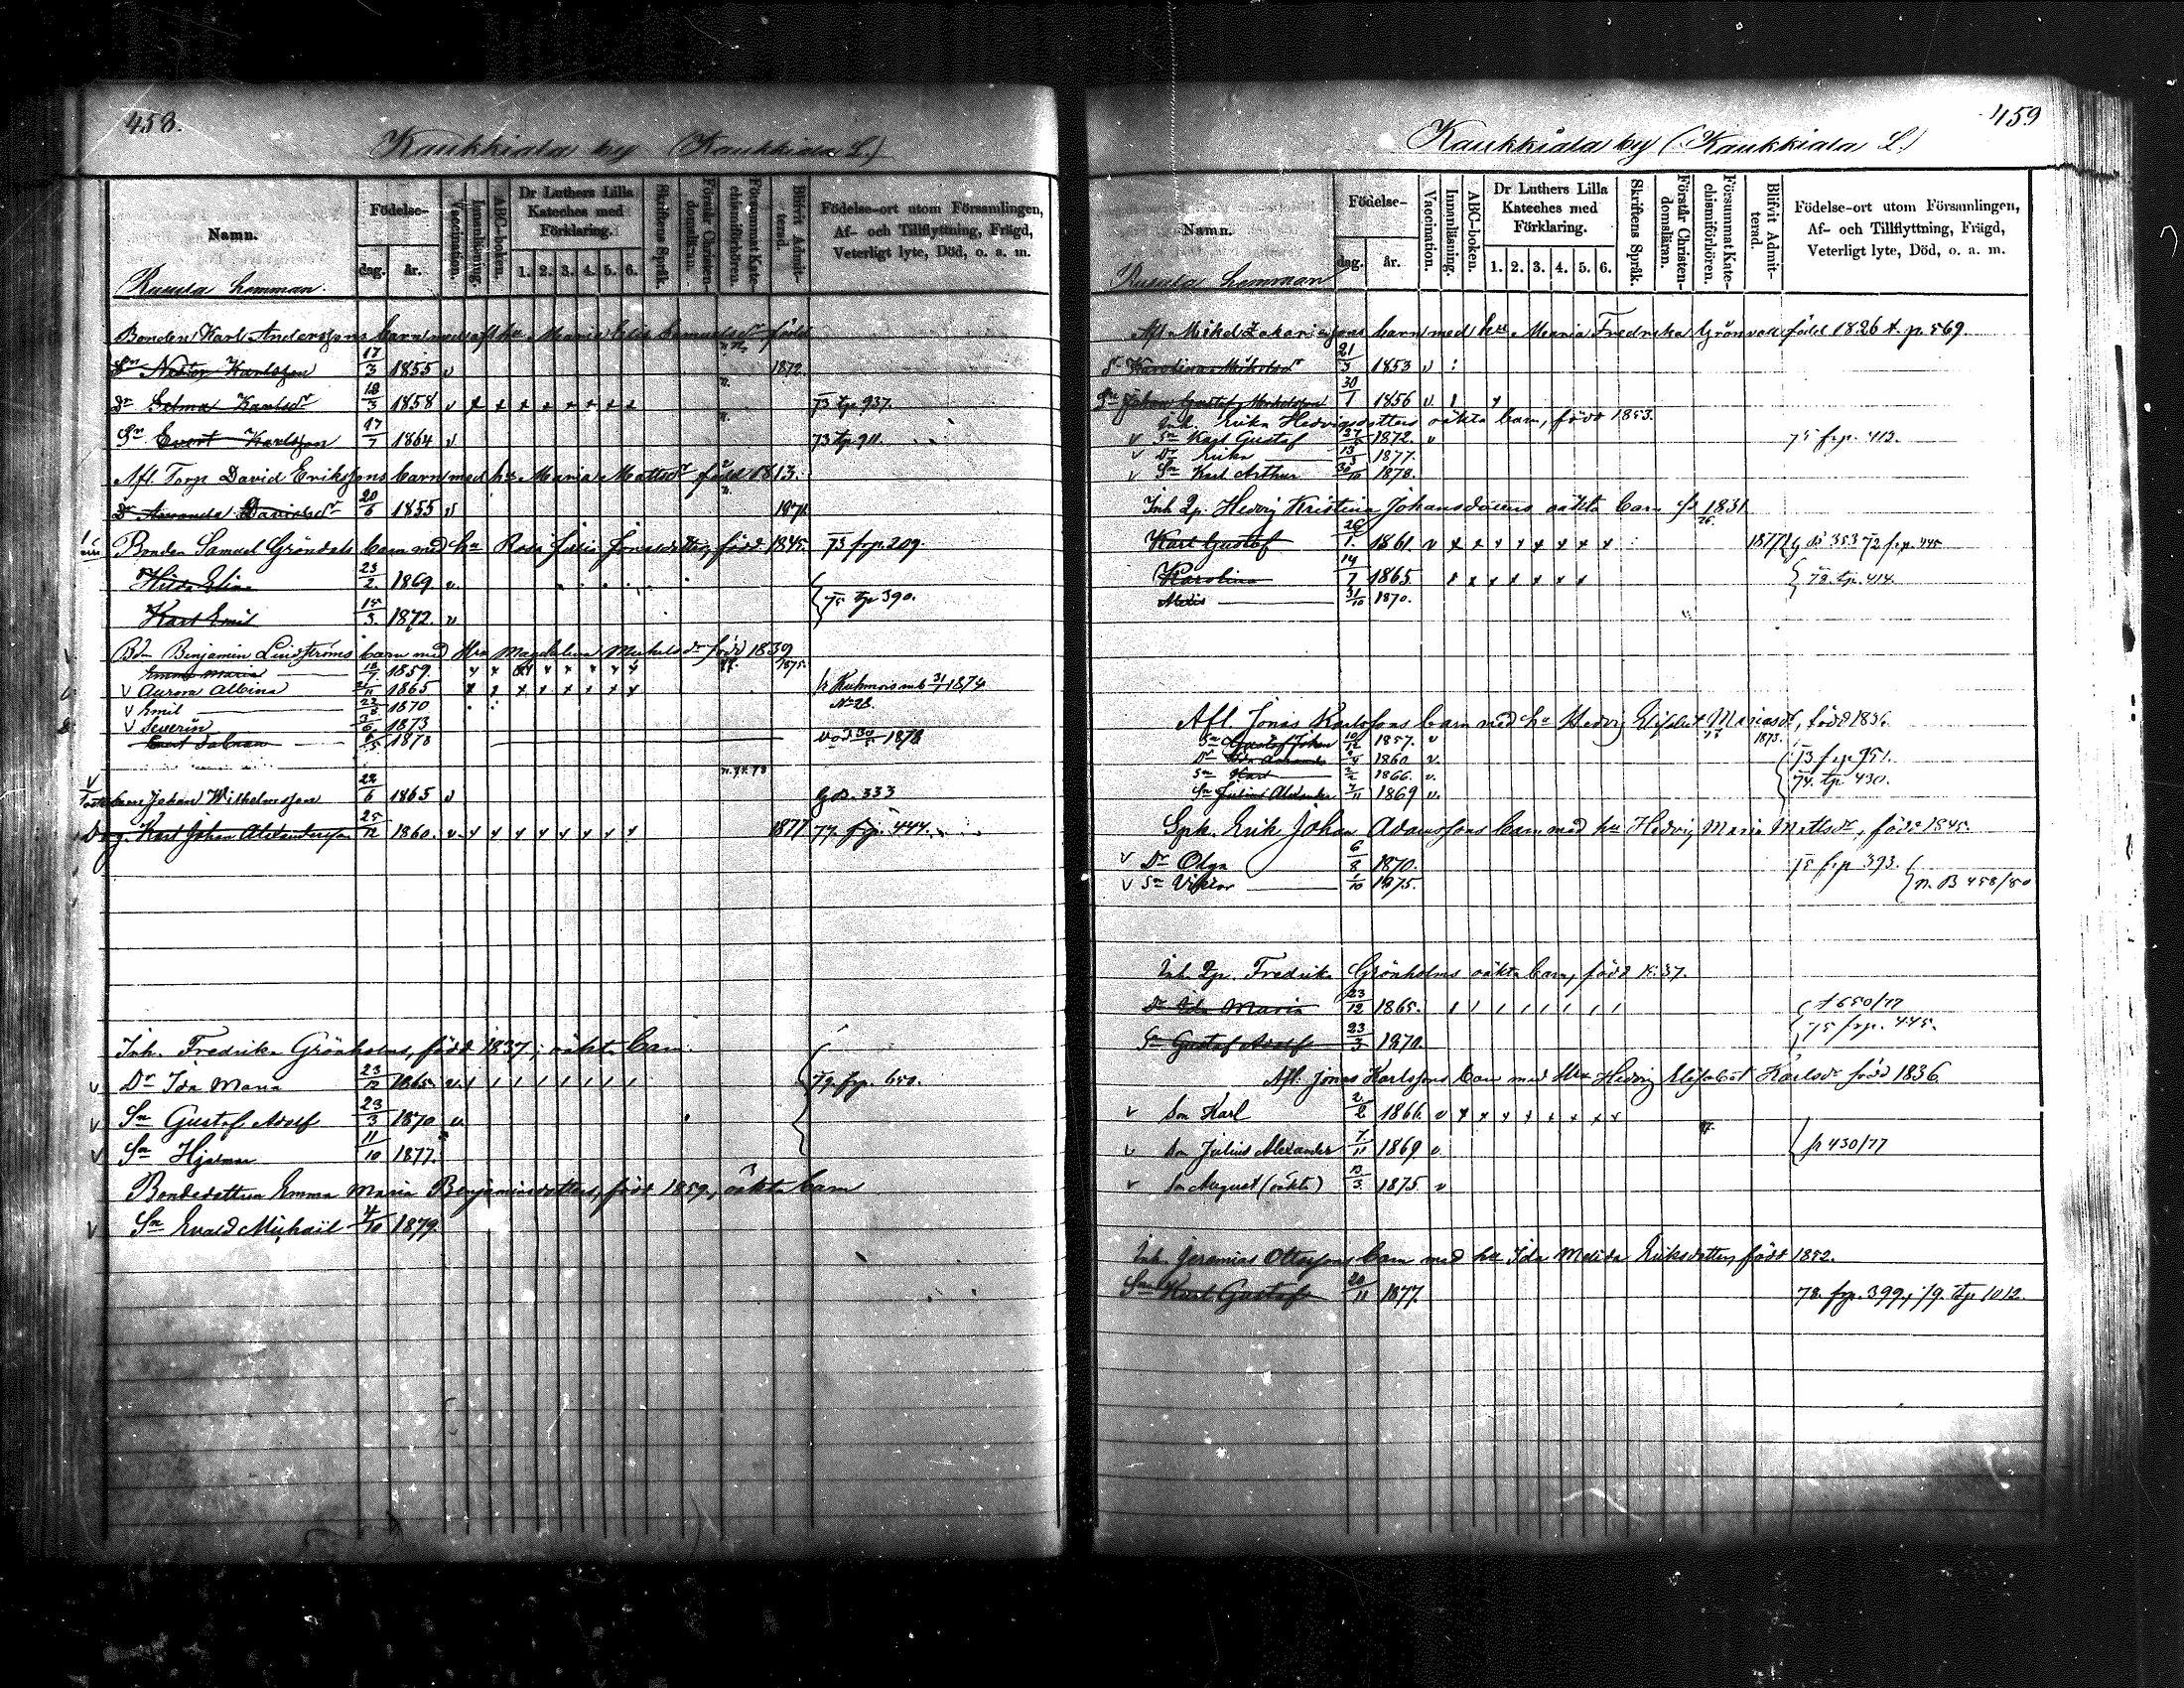 458.
Kaukkiala by (Kaukkiala L.)
Namn.
Födelse-
dag.
år.
Vaccination.
Innanläsning.
ABC-boken.
Dr Luthers Lilla Kateches med Förklaring.
1. 2. 3. 4. 5. 6.
Skriftens Språk.
Förstår Christendomsläran.
Försummat Katechismiförhören.
Blifvit Admitterad.
Födelse-ort utom Församlingen, Af- och Tillflyttning, Frägd, Veterligt lyte, Död, o. a. m.
Rusula hemman.
Bonden Karl Anderssons barn med afl. hu Maria född
Sn Nestor Karlsson 17/3 1855 v 1872
Dr Selma Karlsdr 18/3 1858 v x x x x x x x x 73 tp 937.
Sn Evert Karlsson 17/7 1864 v 73 tp. 911.
Afl. Torp David Erikssons barn med hu Maria Mattsdr född 1813.
Dr Amanda Davidsdr 20/6 1855 v 1871
Bonden Samuel Gröndahls barn med hu Rosa född 1845. 73 frp. 209.
Hilda Elina 23/2 1869 v
Karl Emil 15/3 1872. v 75 tp 390.
Bdn Benjamin Lindströms barn med Hru Magdalena Michelsdr född 1839
Emma Maria 1859. x x x x x x x x 1875.
v Aurora Albina 1865 x x x x x x x x fr Kuhmois mb 31/1 1874
v Emil 1870 No 28.
v Severin 1873
1878 död 1878
Johan Wilhelmsson 22/6 1865 v 333
Karl Johan Alexandersson 25/12 1860. v x x x x x x x x 1877 77. frp. 444.
Inh. Fredrika Grönholms, född 1837, oäkta barn.
v Dr Ida Maria 23/12 1865. v 79. frp. 650.
v Sn Gustaf Adolf 23/3 1870 v
v Sn Hjalmar 11/10 1877.
Bondedottren Emma Maria Benjaminsdotters, född 1859, oäkta barn
v Sn Evald Michael 4/10 1879.
459
Kaukkiala by (Kaukkiala L.)
Namn.
Födelse-
dag.
år.
Vaccination.
Innanläsning.
ABC-boken.
Dr Luthers Lilla Kateches med Förklaring.
1. 2. 3. 4. 5. 6.
Skriftens Språk.
Förstår Christendomsläran.
Försummat Katechismiförhören.
Blifvit Admitterad.
Födelse-ort utom Församlingen, Af- och Tillflyttning, Frägd, Veterligt lyte, Död, o. a. m.
Rusula hemman
Afl. Mikel Zakariassons barn med hu Maria Fredrika Grönvall född 1826 p. 569.
Karolina Mikelsdr 21/3 1853 v
Sn Johan Gustaf Mikelsson 30/1 1856 v
Inh. Erika Hedvigsdotters oäkta barn, född 1853.
v Sn Karl Gustaf 1872. v 75 frp. 413.
v Dr Erika 1877.
v Sn Karl Arthur 30/10 1878.
Inh Qp. Hedvig Kristina Johansdotters oäkta barn f. 1831
Karl Gustaf 26/1 1861 v x x x x x x x x 1877 353 72 frp. 445
Karolina 14/7 1865 x x x x x x x 72. tp. 414.
Alexis 31/10 1870.
Afl. Jonas Karlssons barn med hu Hedvig Elisabet, född 1836.
Sn Gustaf Johan 10/12 1857. v 1873.
Dr Ida 1860 v. 73 frp 951.
Sn Karl 2/2 1866. v. 74. tp 430.
Sn Julius Alexander 7/11 1869 v.
Erik Johan Adamssons barn med hu Hedvig Maria Mattsdr, född 1845.
v Dr Olga 6/8 1870. 75 frp 393.
v Sn Viktor 1/10 1875. n. B 458/80
Inh. Qp. Fredrika Grönholms oäkta barn, född 1837.
Dr Ida Maria 23/12 1865. 650/77
Sn Gustaf Adolf 23/3 1870. 75 frp. 445.
Afl. Jonas Karlssons barn med Hru Hedvig Elisabet Karlsdr född 1836.
v Son Karl 2/2 1866. v x x x x x x x x
v Son Julius Alexander 7/11 1869 v. fr 430/77
v Son August (oäkta) 13/3 1875. v
Inh. Jeremias Ottossons barn med hu Ida Melida Eriksdotter, född 1852.
Sn Karl Gustaf 20/11 1877. 78. frp. 399, 79. tp 1012.